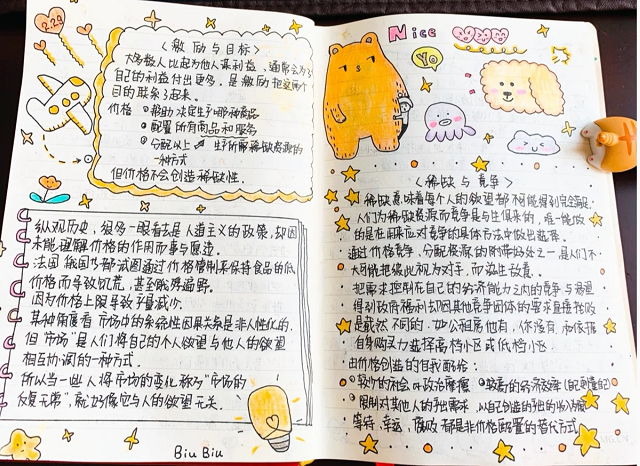 2.29
〈激励与目标〉
大多数人比起为他人谋利益，通常会为了
自己的利益付出更多，是激励把这两个
目的联系了起来。
价格 ①帮助决定生产哪种商品
②配置所有商品和服务
③分配以上 生产所需稀缺资源的
一种方式
但价格不会创造稀缺性。
纵观历史，很多一眼看去是人道主义的政策，却因
未能理解价格的作用而事与愿违。
法国 俄国 都试图通过价格管制来保持食品的低
价格而导致饥荒，甚至饿殍遍野。
因为价格上限导致了量减少。
某种角度看 市场中的系统性因果关系是非人性化的，
但"市场"是人们将自己的个人欲望与他人的欲望
相互协调的一种方式。
所以当一些人将市场的变化称为"市场的
反复无常"，就好像它与人的欲望无关。
Biu Biu
Nice
Yo
〈稀缺与竞争〉
稀缺意味着每个人的欲望都不可能得到完全满足，
人们为稀缺资源而竞争是与生俱来的，唯一能做
的是在用来应对竞争的具体方法中做出选择。
通过价格竞争，分配资源的附带好处之一，是人们不
大可能把彼此视为对手，而滋生敌意。
把需求控制在自己的经济能力之内的竞争与渴望
得到政府福利却因其他竞争团体的要求直接挫败
是截然不同的。 公租房他有，你没有，和依据
自身购买力选择高档小区或低档小区。
由价格创造的自我配给：
①较少的社会 政治摩擦 ②较高的经济效率
③限制对其他人的产出需求，以自己创造的产出的
等待、幸运、腐败 都是非价格配置的替代方式